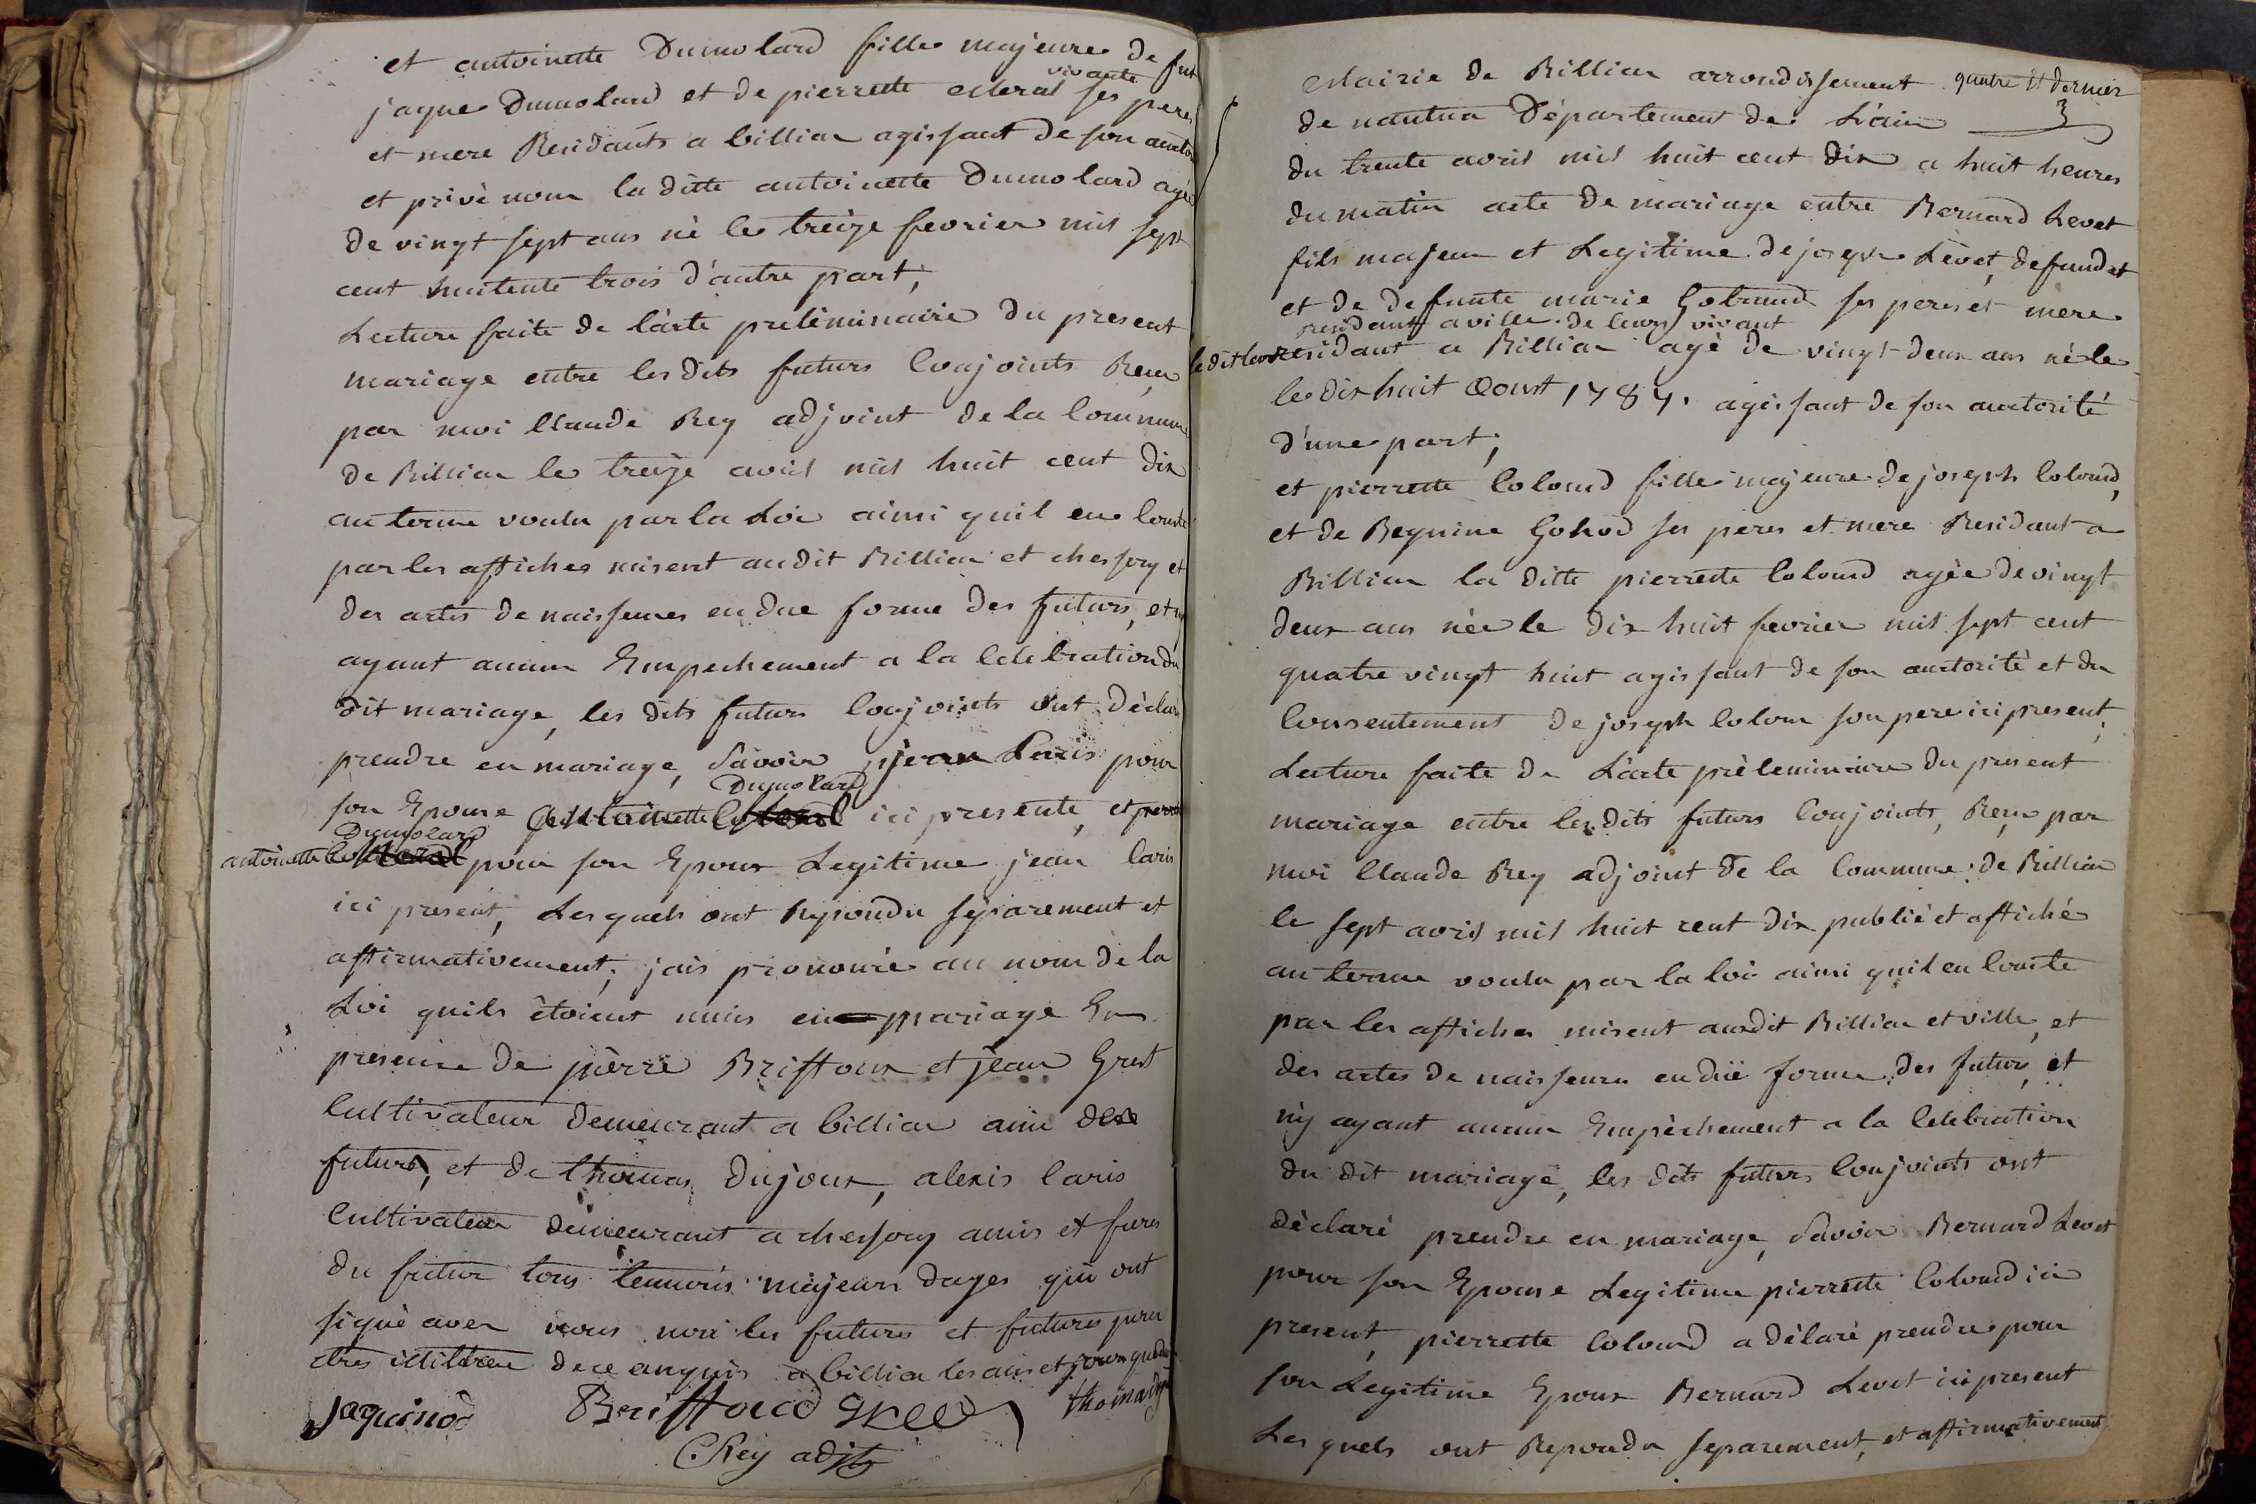 et antoinette Dumolard fille majeure de fut
jaque Dumolard et de pierrette Meral vivante ses peres
et mere Residants a billia agissant de son autto
et privé nom la ditte antoinette Dumolard agé
de vingt sept ans né le treize fevrier mil sept
cent huitente trois d'autre part,
Lecture faite de l'acte preliminaire du present
mariage entre les dits futurs Conjoints Reçu
par moi Claude Rey adjoint de la Commune
de Billia le treize avril mil huit cent dix
au terme voulu par la Loi ainsi quil en Conste
par les affiches misent audit Billia et chesery et
des actes de naissences en due forme des futurs, et ny
ayant aucun Empechement a la Celebration du
dit mariage, les dits futurs Conjoints ont déclaré
prendre en mariage, Savoir, jean Laris pour
son Epouse antoinette Dumolard ici presente, et
antoinette Dumolard pour son Epoux Legitime jean Laris
ici présent, Les quels ont Repondu séparement et
affirmativement, jais prononcé au nom de la
Loi quils étoient unis en mariage En
presence de pierre Briffoux et jean Gret
Cultivateur demeurant a billia amis des
futurs, et de thomas Dujoux, alexis Caris
Cultivateur demeurant a chesory amis et freres
du futur tous temoins majeurs dages qui ont
signé avec nous non les futurs et futures pour
etres illiteré de ce enquis a billia les ans et jours que
Jaquinod Briffoud Gret thomas
C. Rey adjt
Mairie de Billia arrondissement quatre et dernier
de nantua Département de L'ain 3
du trente avril mil huit cent dix a huit heures
du matin acte de mariage entre Bernard Levet
fils majeur et Legitime de joseph Levet, defundet
et de defunte marie Gobrand ses peres et mere
residant a ville de leurs vivant
le dit levet residant a Billia agé de vingt deux ans né le
le dix huit Aoust 1787. agissant de son auctorité
d'une part;
et pierrette Colomd fille majeure de joseph Colomd,
et de Beguine Gohod ses peres et mere Residant a
Billia la ditte pierrette Colomd agée de vingt
deux ans née le dix huit fevrier mil sept cent
quatre vingt huit agissant de son auctorité et du
Consentement de joseph Colom son pere ici present,
Lecture faite de L'acte prèleminaire du present
mariage entre les dits futurs Conjoints, Reçu par
moi Claude Rey adjoint de la Commune de Billia
le sept avril mil huit cent dix publié et affiché
au terme voulu par la loi ainsi quil en Conste
par les affiches misent audit Billia et ville, et
des actes de naissences en düe forme des futurs, et
n'y ayant aucun Empèchement a la Celebration
du dit mariage, les dits futurs Conjoints ont
déclaré prendre en mariage, Savoir Bernard Levet
pour son Epouse Legitime pierrette Colomd ici
present, pierrette Colomd a délaré prendre pour
son Legitime Epoux Bernard Levet ici present
Les quels ont Repondu separement, et affirmativement